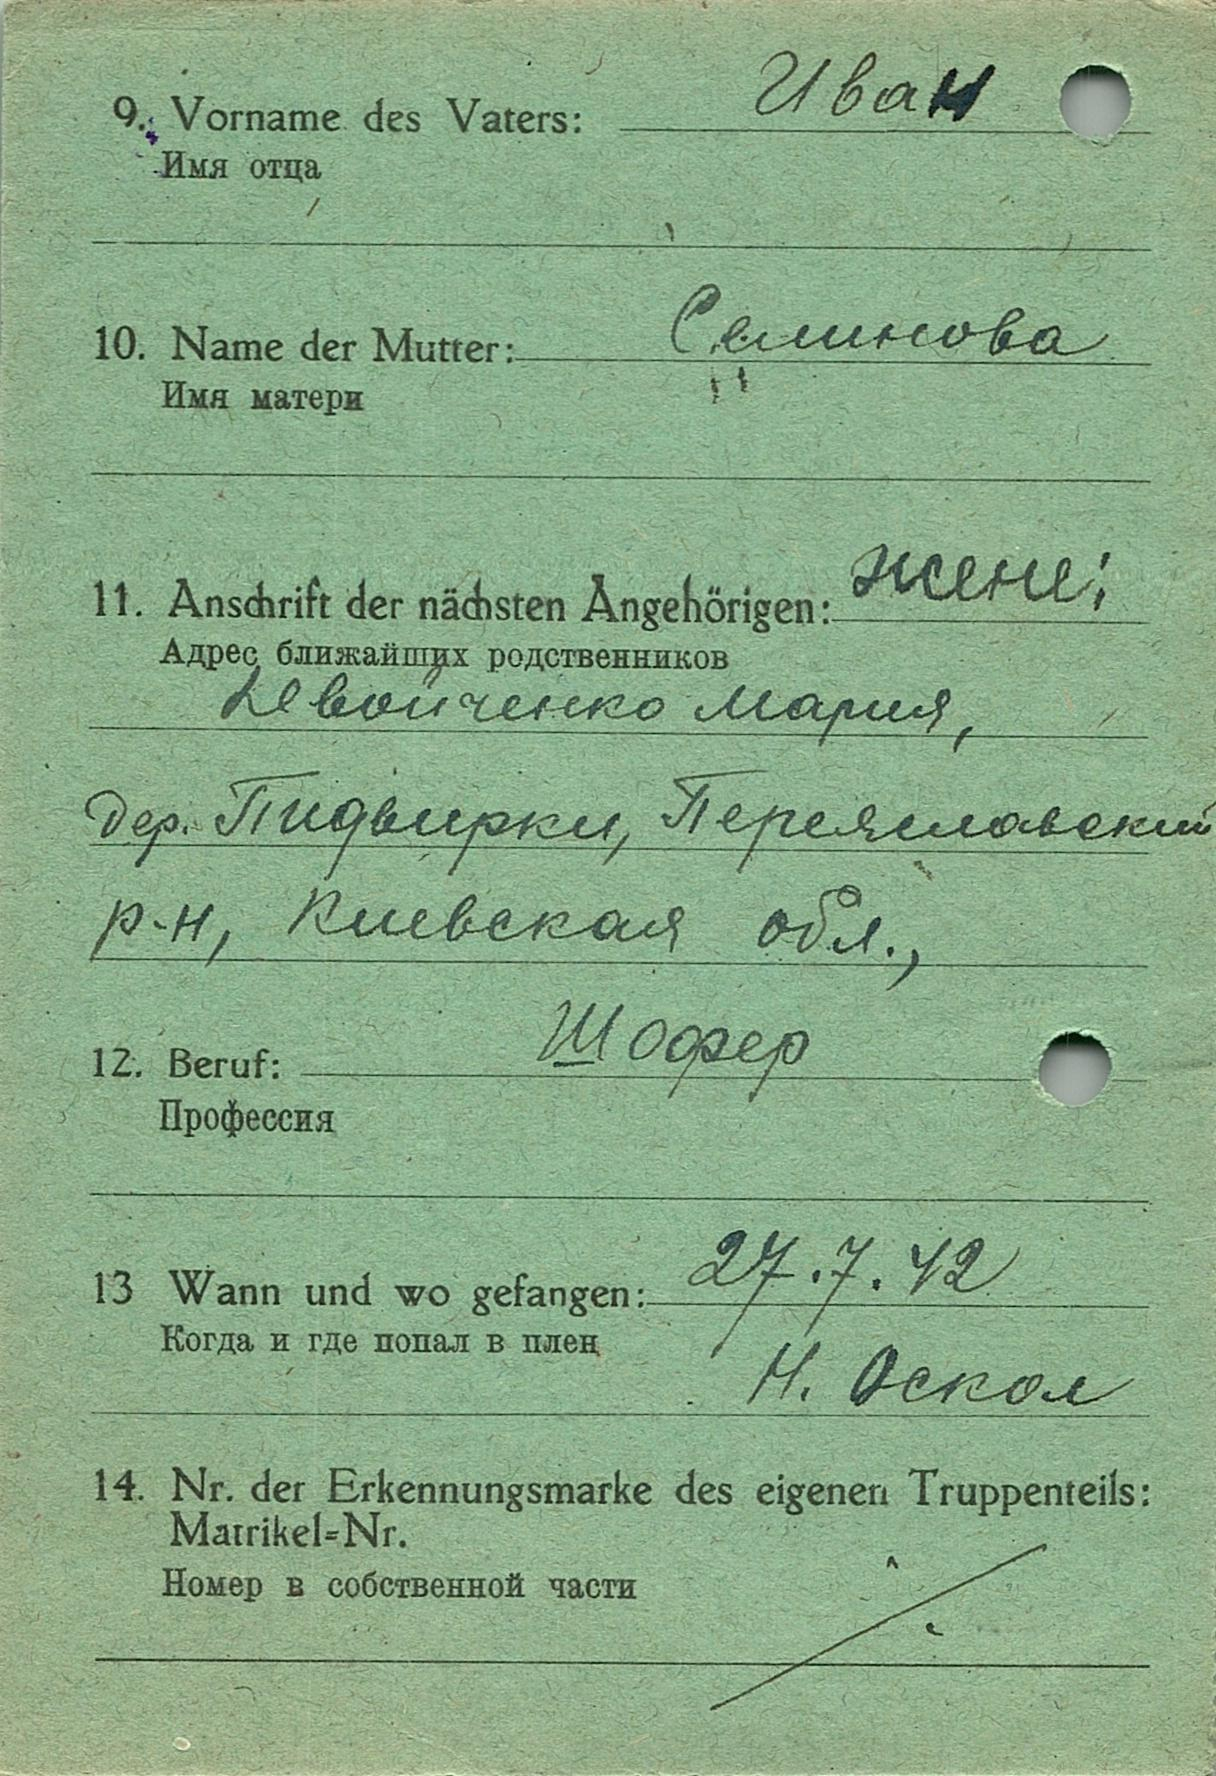 9. Vorname des Vaters: Иван
Имя отца
10. Name der Mutter: Семинова
Имя матери
11. Anschrift der nächsten Angehörigen: жене:
Адрес ближайших родственников
Девойченко Мария,
дер. Пидвирки, Переяславский
р-н, Киевская обл.,
12. Beruf: Шофер
Профессия
13 Wann und wo gefangen: 27.7.42
Когда и где попал в плен
Н. Оскол
14. Nr. der Erkennungsmarke des eigenen Truppenteils:
Matrikel=Nr.
Номер в собственной части